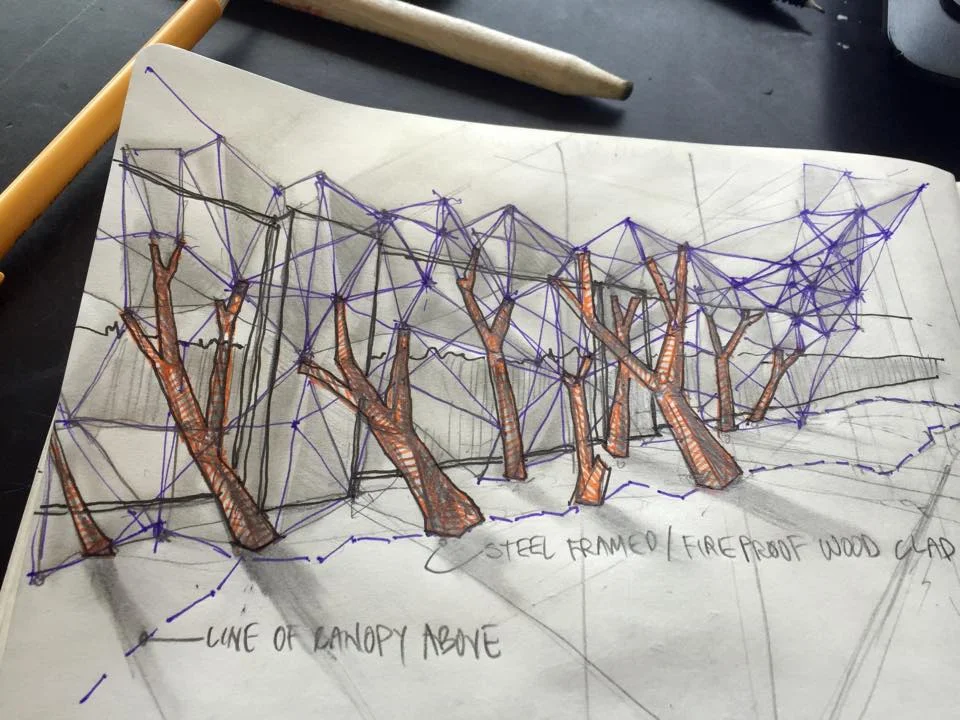 STEEL FRAMED/FIREPROOF WOOD CLAD
LINE OF CANOPY ABOVE